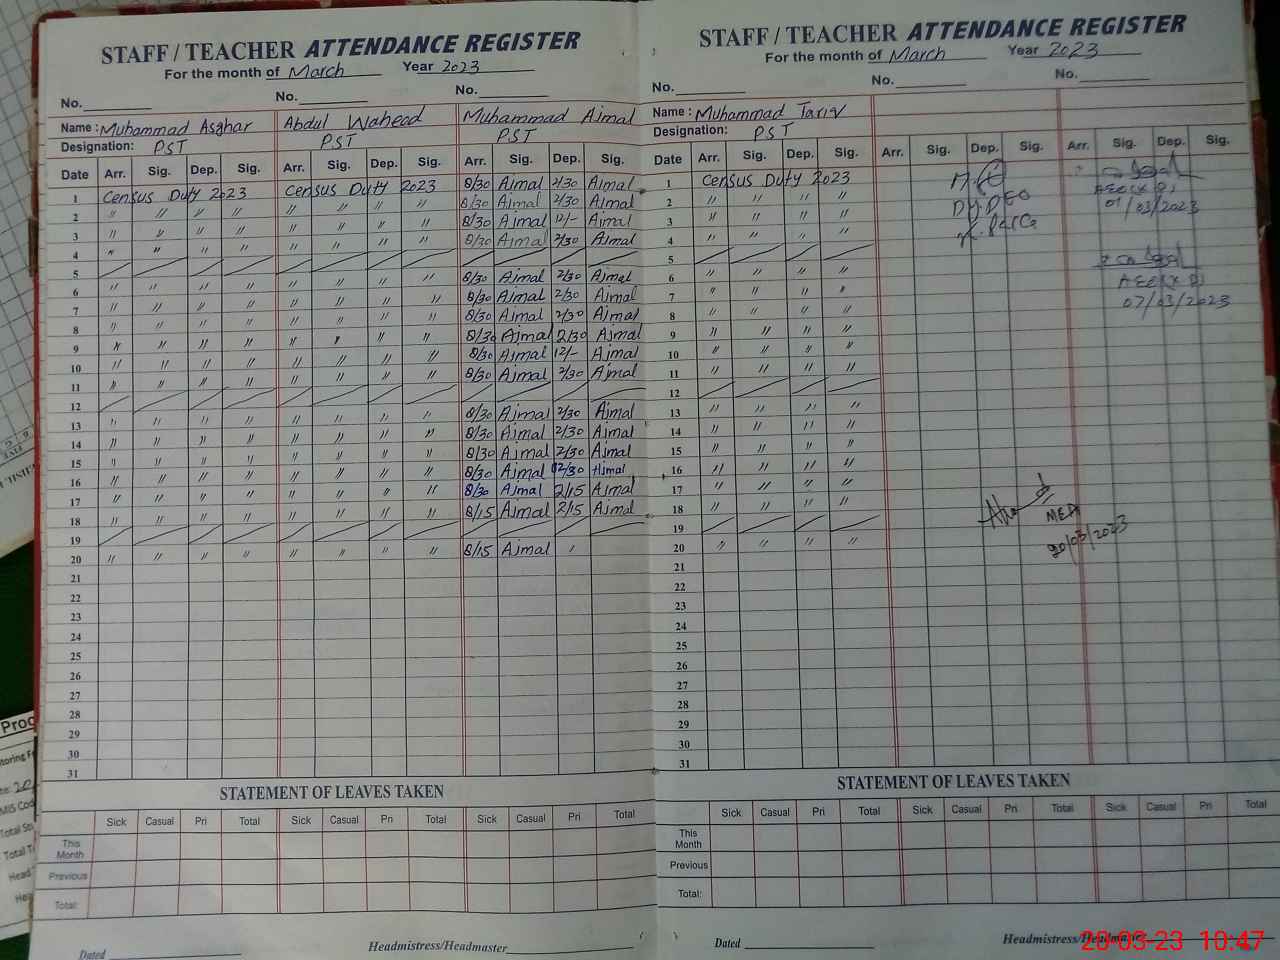 STAFF / TEACHER ATTENDANCE REGISTER
For the month of March Year 2023
No. No. No.
Name : Muhammad Asghar Abdul Waheed Muhammad Ajmal
Designation: PST PST PST
Date Arr. Sig. Dep. Sig. Arr. Sig. Dep. Sig. Arr. Sig. Dep. Sig.
1 Census Duty 2023 Census Duty 2023 8/30 Ajmal 2/30 Ajmal
2 " " " " " " " " 8/30 Ajmal 2/30 Ajmal
3 " " " " " " " " 8/30 Ajmal 12/- Ajmal
4 " " " " " " " " 8/30 Ajmal 2/30 Ajmal
5
6 " " " " " " " " 8/30 Ajmal 2/30 Ajmal
7 " " " " " " " " 8/30 Ajmal 2/30 Ajmal
8 " " " " " " " " 8/30 Ajmal 2/30 Ajmal
9 " " " " " " " " 8/30 Ajmal 2/30 Ajmal
10 " " " " " " " " 8/30 Ajmal 12/- Ajmal
11 " " " " " " " " 8/30 Ajmal 2/30 Ajmal
12
13 " " " " " " " " 8/30 Ajmal 2/30 Ajmal
14 " " " " " " " " 8/30 Ajmal 2/30 Ajmal
15 " " " " " " " " 8/30 Ajmal 2/30 Ajmal
16 " " " " " " " " 8/30 Ajmal 12/30 Ajmal
17 " " " " " " " " 8/30 Ajmal 2/15 Ajmal
18 " " " " " " " " 8/15 Ajmal 2/15 Ajmal
19
20 " " " " " " " " 8/15 Ajmal
21
22
23
24
25
26
27
28
29
30
31
STATEMENT OF LEAVES TAKEN
Sick Casual Pri Total Sick Casual Pri Total Sick Casual Pri Total
This Month
Previous
Total:
Dated Headmistress/Headmaster
STAFF / TEACHER ATTENDANCE REGISTER
For the month of March Year 2023
No. No. No.
Name : Muhammad Tariq
Designation: PST
Date Arr. Sig. Dep. Sig. Arr. Sig. Dep. Sig. Arr. Sig. Dep. Sig.
1 Census Duty 2023
2 " " " "
3 " " " "
4 " " " "
5
6 " " " "
7 " " " "
8 " " " "
9 " " " "
10 " " " "
11 " " " "
12
13 " " " "
14 " " " "
15 " " " "
16 " " " "
17 " " " "
18 " " " "
19
20 " " " "
21
22
23
24
25
26
27
28
29
30
31
01/03/2023
07/03/2023
MEA
20/03/2023
STATEMENT OF LEAVES TAKEN
Sick Casual Pri Total Sick Casual Pri Total Sick Casual Pri Total
This Month
Previous
Total:
Dated Headmistress/Headmaster
20-03-23 10:47